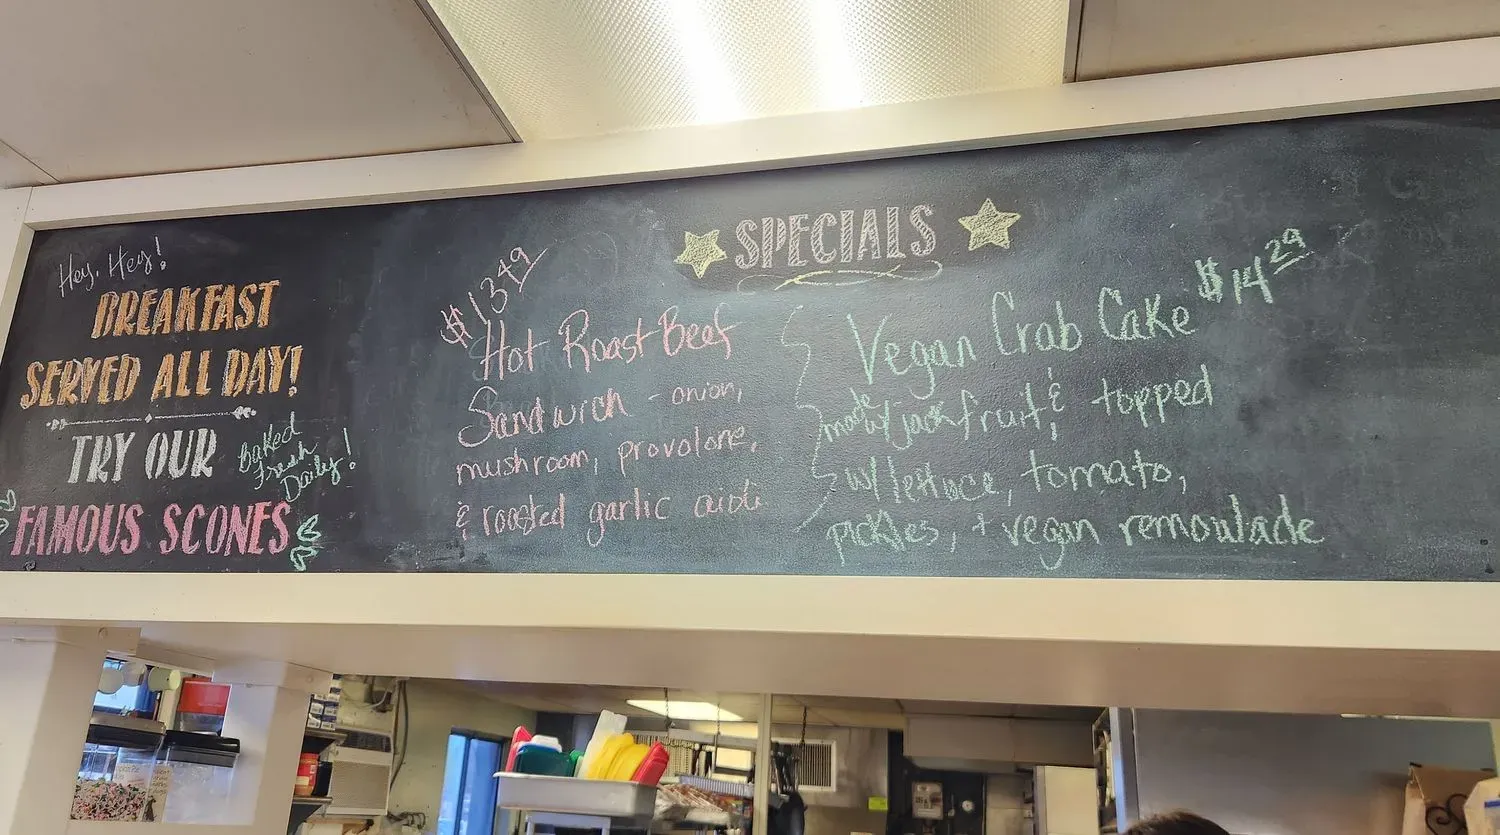 Hey, Hey!
BREAKFAST
SERVED ALL DAY!
TRY OUR
Baked
Fresh
Daily!
FAMOUS SCONES
SPECIALS
$13 49
Hot Roast Beef
Sandwich - onion,
mushroom, provolone,
& roasted garlic aioli
Vegan Crab Cake $14 29
made w/ jackfruit & topped
w/ lettuce, tomato,
pickles, + vegan remoulade